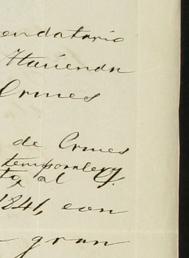 endatario
Hacienda
Ormes
de Ormes
temporalery
ta al
1846, con
gran